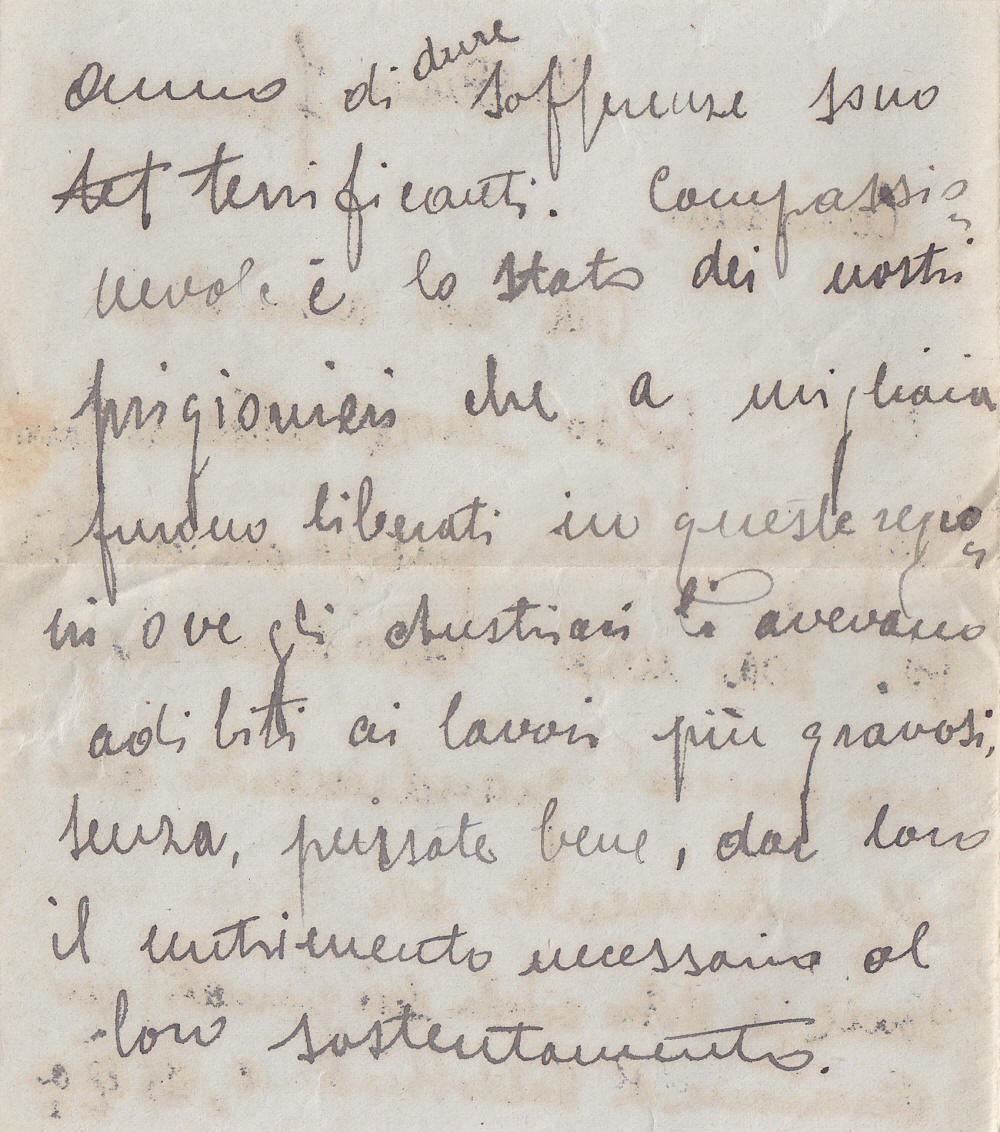 anno di dure sofferenze sono
tet terrificanti. Compassio
nevole è lo stato dei nostri
prigionieri che a migliaia
furono liberati in queste regio
ni ove gli austriaci li avevano
adibiti ai lavori più gravosi,
senza, pensate bene, dar loro
il nutrimento necessario al
loro sostentamento.